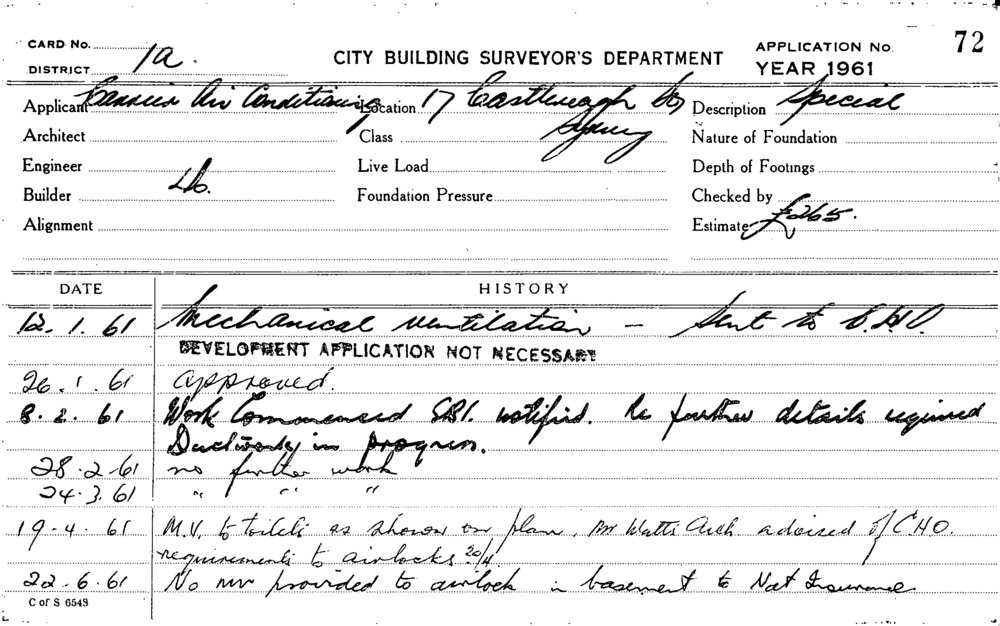 CARD No. 1a. CITY BUILDING SURVEYOR'S DEPARTMENT APPLICATION No. 72
DISTRICT YEAR 1961
Applicant Carrier Air Conditioning Location 17 Castlereagh St Description Special
Architect Class Sydney Nature of Foundation
Engineer Live Load Depth of Footings
Builder Foundation Pressure Checked by
Alignment Estimate £265.
DATE HISTORY
12.1.61 Mechanical ventilation — Sent to C.H.O.
DEVELOPMENT APPLICATION NOT NECESSARY
26.1.61 approved.
8.2.61 Work Commenced notified. Re further details required
Ductwork in progress.
28.2.61 no further work
24.3.61 " " "
19-4.61 M.V. to toilets as shown on plan. Mr Watts Arch advised of CHO.
requirements to airlocks 20/4.
22.6.61 No mv provided to airlock in basement to Nat Insurance
C of S 6543